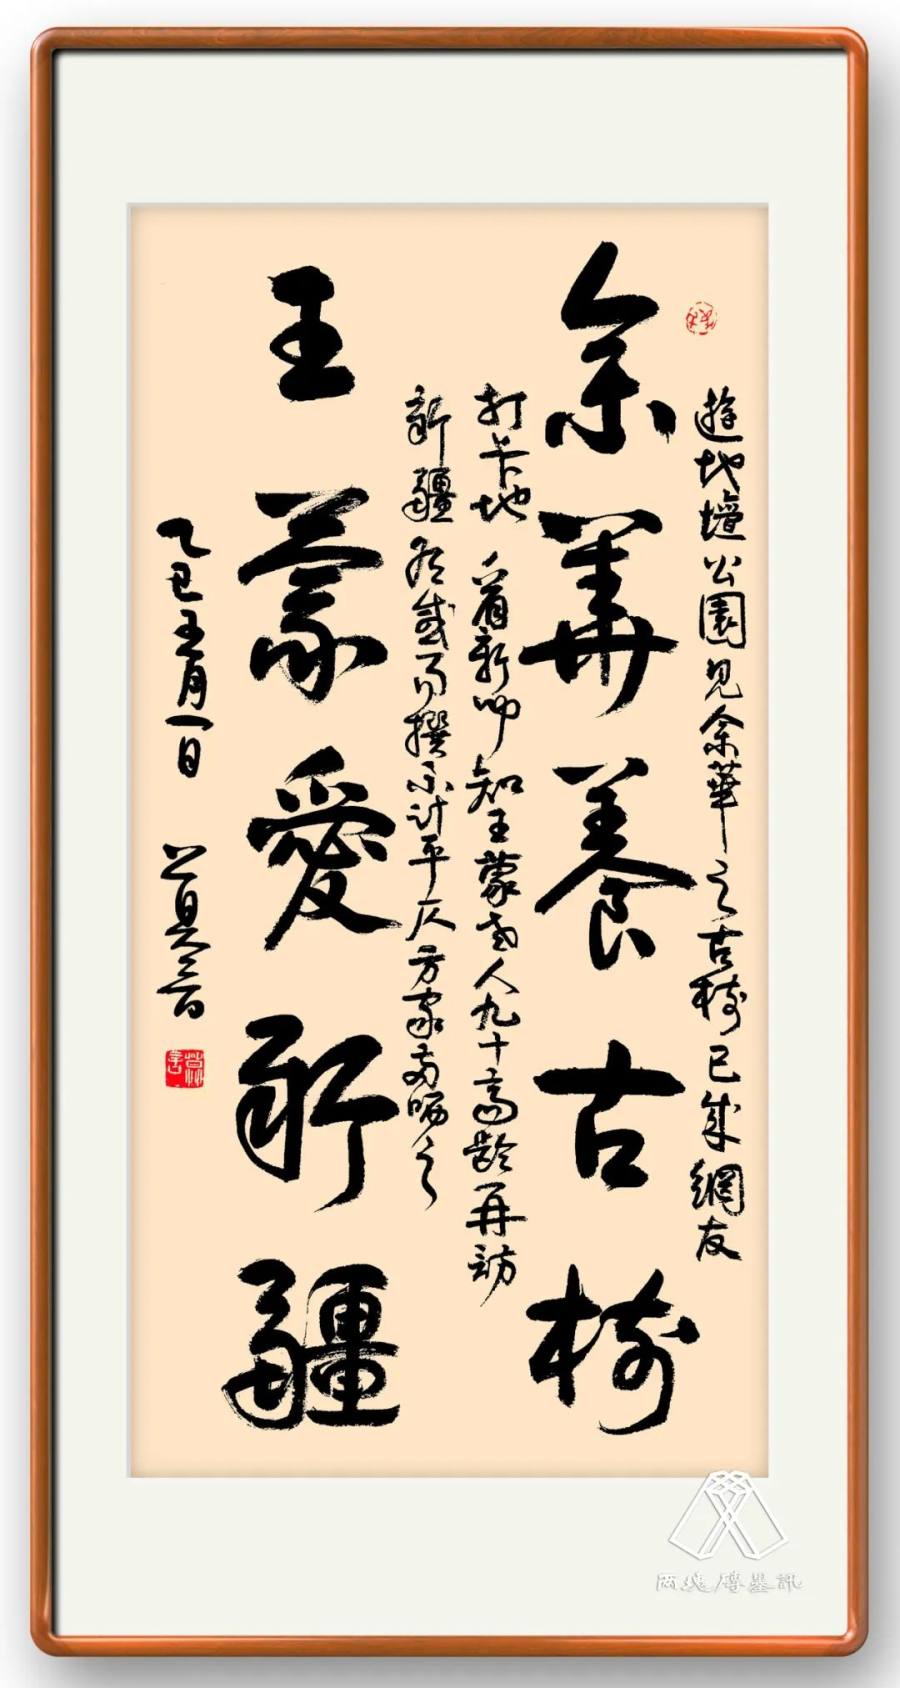 遊地壇公園見余華之古椅已成網友
余華養古椅
打卡地 看新聞知王蒙老人九十高齡再訪
新疆有感而撰不計平仄方家哂之
王蒙愛新疆
乙巳五月一日 莫言
莫言
兩塊磚墨訊